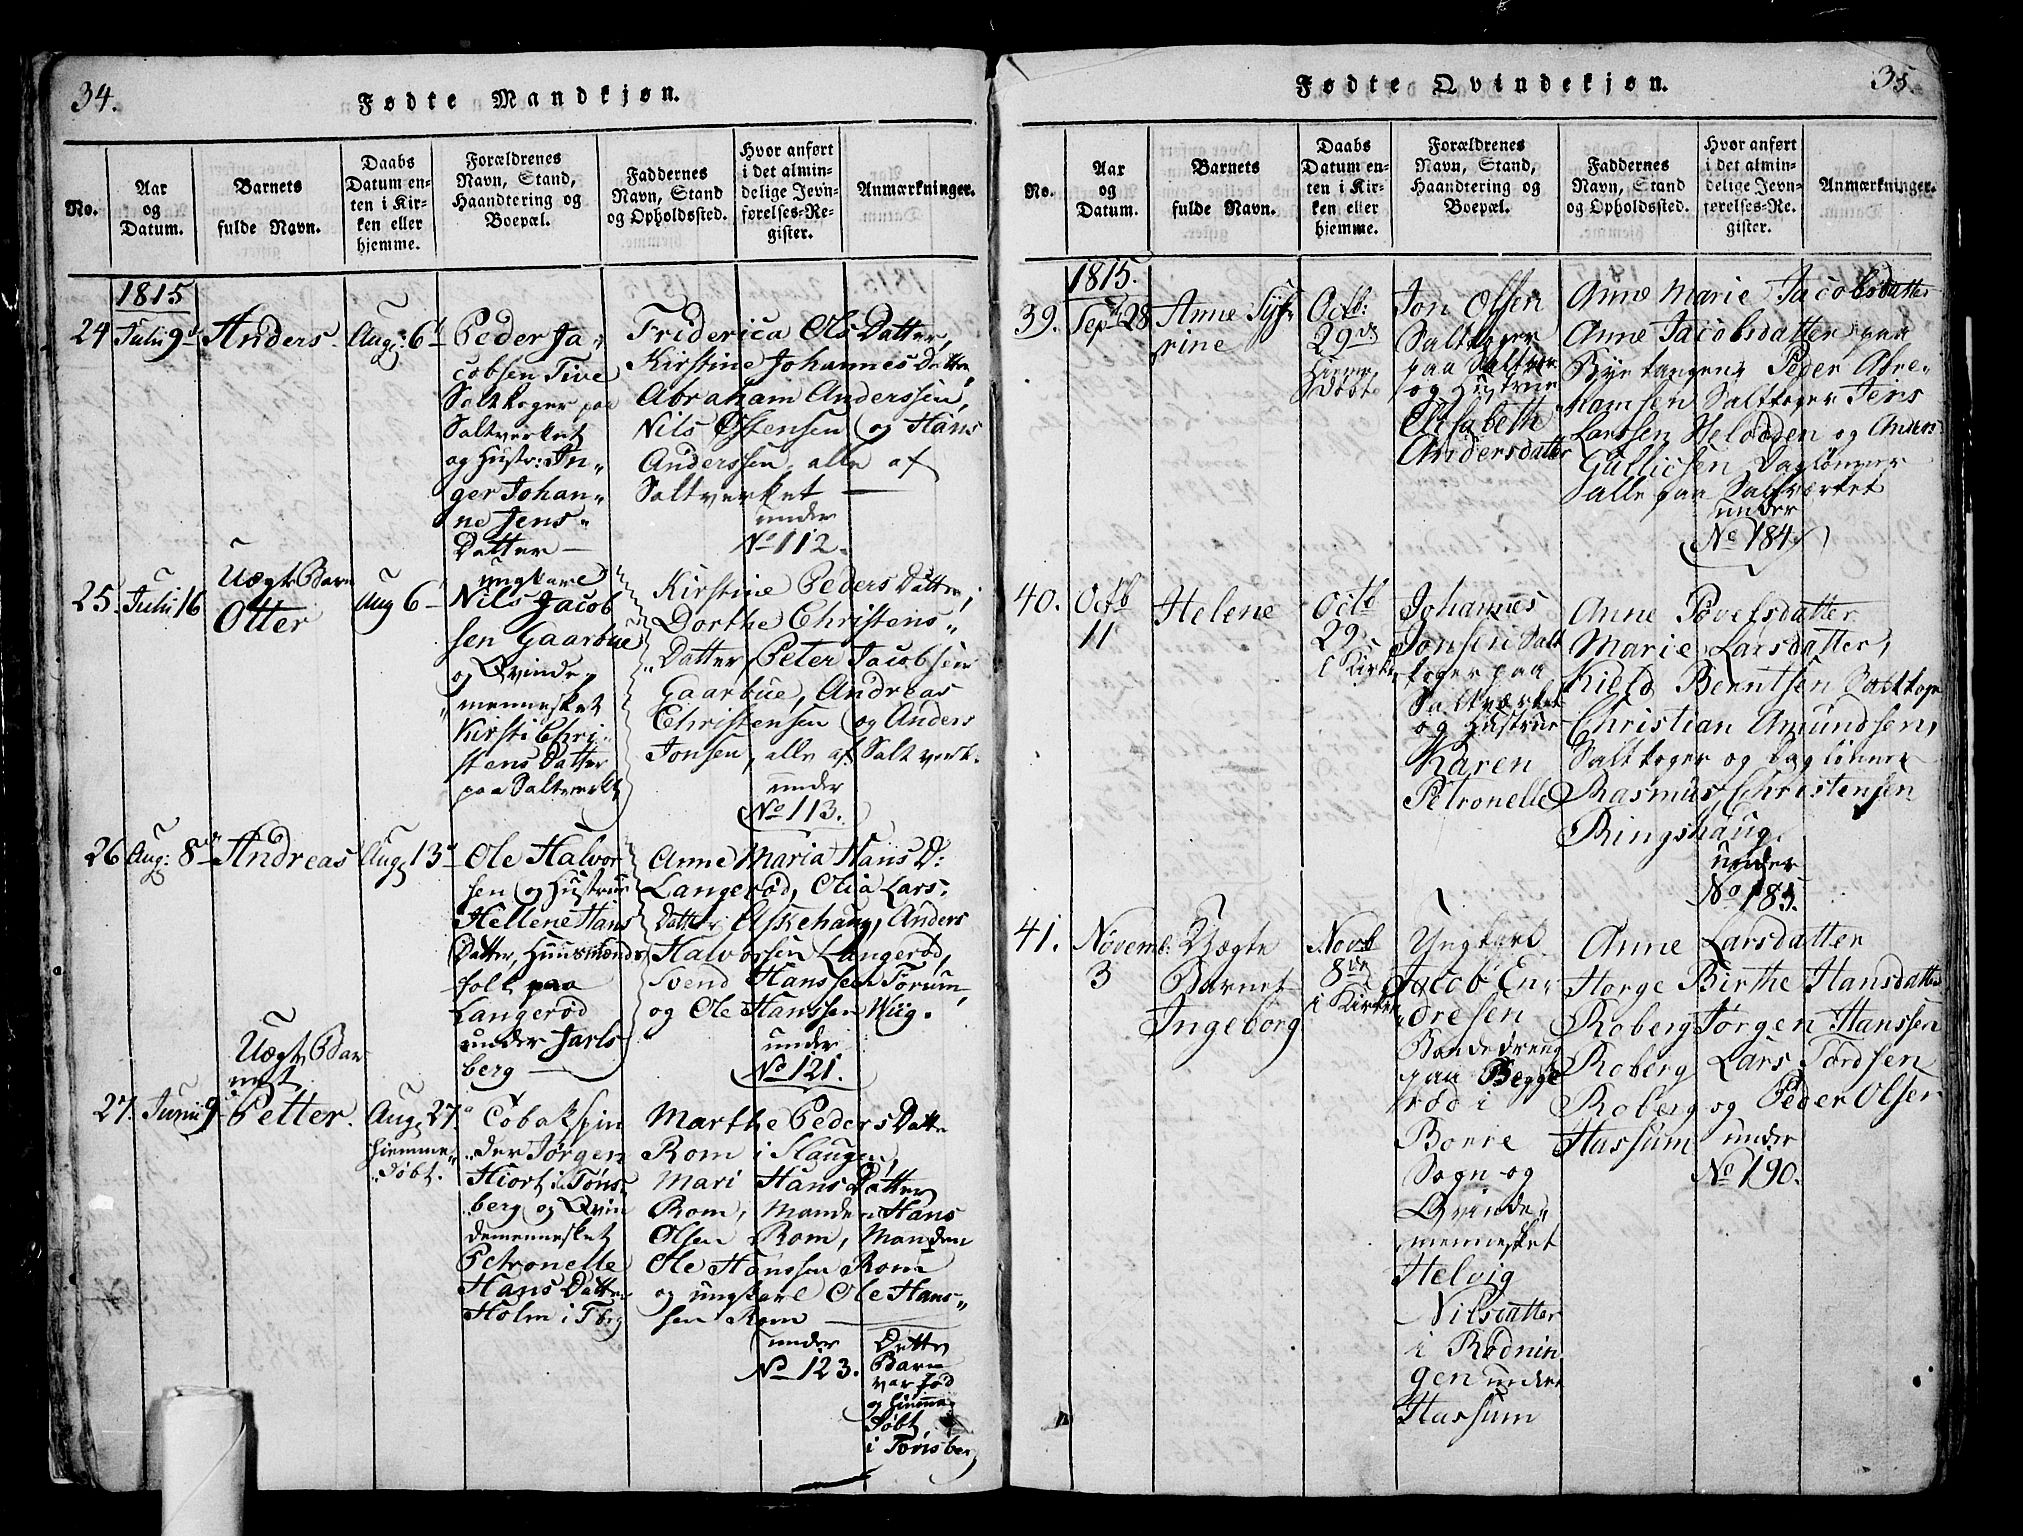 34.
Fødte Mandkjøn.
No.
Aar
og
Datum.
Barnets
fulde Navn.
Daabs
Datum en-
ten i Kir-
ken eller
hjemme.
Forældrenes
Navn, Stand,
Haandtering og
Boepæl.
Faddernes
Navn, Stand
og Opholdssted.
Hvor anført
i det almin-
delige Jevn-
førelses-Re-
gister.
Anmærkninger.
1815
24
Julii 9d
Anders.
Aug: 6d
Peder Ja-
cobsen Tive
Saltkoger paa
Saltverket
og Hustr: In-
ger Johan-
ne Jens-
Datter —
Friderica Ols Datter,
Kirstine Johannes Datter,
Abraham Anderssen,
Nils Østensen og Hans
Anderssen, alle af
Saltverket —
under
No 112.
25.
Julii 16
Uægt Barn
Otter
Aug 6 —
Ungkarl
Nils Jacob
sen Gaarbue
og Qvinde-
mennesket
Kirsti Chri-
stens Datter
paa Saltverket
Kirstine Peders Datter,
Dorthe Christens-
Datter, Peter Jacobsen
Gaarbue, Andreas
Christensen og Anders
Jonsen, alle af Saltverk.
under
No 113.
26
Aug: 8de
Andreas
Aug 13d
Ole Halvor
sen og Hustrue
Hellene Hans
Datter, Huusmands
folk paa
Langerød
under Jarls
berg —
Anne Maria Hans D:
Langerød, Olia Lars-
Datter Eskehaug, Anders
Halvorssen Langerød,
Svend Hanssen Torum,
og Ole Hanssen Wiig.
under
No 121.
27.
Junii 9
Uægt Bar
net
Petter.
Aug 27.
Hiemme-
døbt.
Tobakspin
der Jørgen
Hiort i Tøns-
berg og Qvin
demennesket
Petronelle
Hans Datter
Holm i Tbrg
Marthe Peders Datter
Rom i Slaugen,
Mari Hans Datter
Rom, Manden Hans
Olsen Rom, Manden
Ole Hanssen Rom
og ungkarl Ole Hans-
sen Rom —
under
No 123.
Dette
Barn
var fød
og hiemme-
døbt
i Tønsberg
35.
Fødte Qvindekjøn.
No.
Aar
og
Datum.
Barnets
fulde Navn.
Daabs
Datum en-
ten i Kir-
ken eller
hjemme.
Forældrenes
Navn, Stand,
Haandtering og
Boepæl.
Faddernes
Navn, Stand
og Opholdssted.
Hvor anført
i det almin-
delige Jevn-
førelses-Re-
gister.
Anmærkninger.
1815.
39.
Sept 28
Anne
rine
Octb:
29de
Hieme
døbt
Jon Olsen
Saltkoger
paa Saltver
og Hustrue
Elisabeth
Andersdatter
Anne Marie Jacobsdatter
Anne Jacobsdatter paa
Byetangen, Peder Abra-
hamsen Saltkoger Jens
Larssen Helodden og Anders
Gullicsen Dagløner
alle paa Saltværket
under
No 184
40.
Octb
11
Helene
Octb
29
i Kirken
Johannes
Jonsen Salt
koger paa
Saltværket
og Hustrue
Karen
Petronelle
Anne Povelsdatter
Marie Larsdatter,
Kield Berntsen Saltkoger
Christian Amundsen,
Saltkoger og Dagløner
Rasmus Christensen
Ringshaug.
under
No 185.
41.
Novemb:
3
Uægte
Barnet
Ingeborg
Novb
8de
i Kirken
Ungkarl
Jacob En-
dresen
Bondedreng
paa Bægge
rød i
Borre
Sogn og
Qvinde-
mennesket
Helvig
Nilsdatter
i Rødnin
gen under
Hassum
Anne Larsdatter
Horge Birthe Hansdatter
Roberg Jørgen Hanssen
Roberg Lars Tordsen
Roberg og Peder Olsen
Hassum
under
No 190.